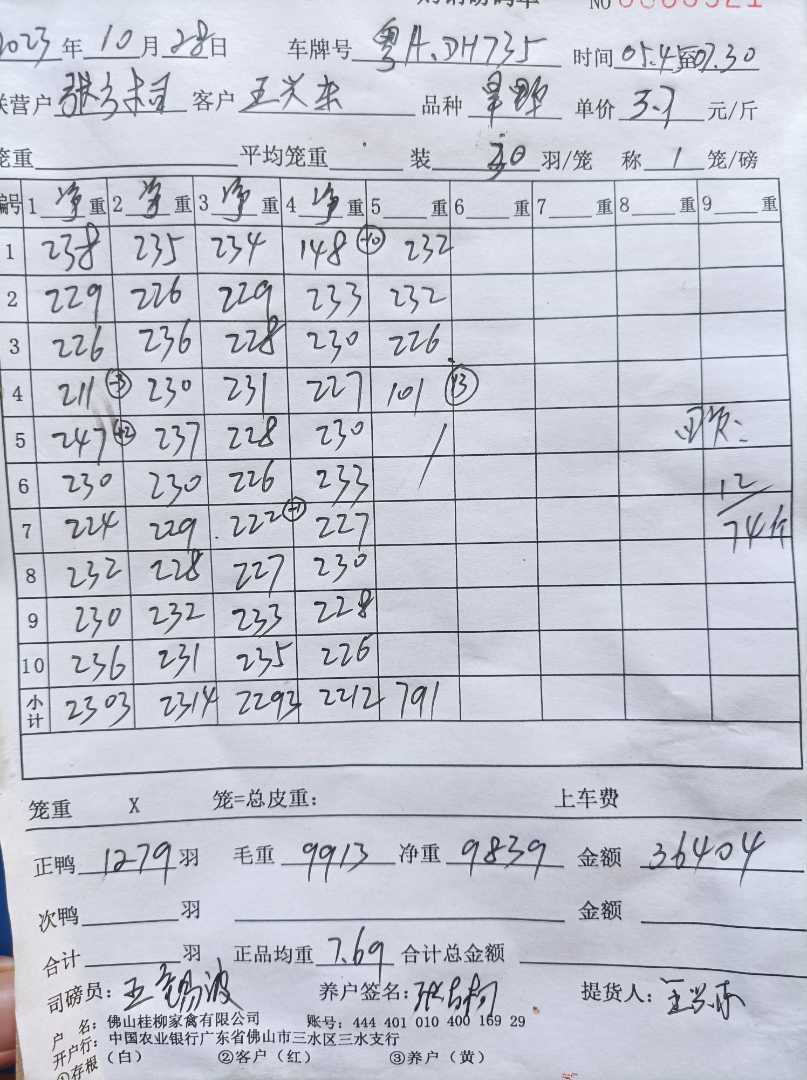 NO
2023 年 10 月 28 日 车牌号 粤A.DH735 时间 05.45至07.30
联营户 客户 王兴东 品种 单价 3.7 元/斤
笼重 平均笼重 装 30 羽/笼 称 1 笼/磅
编号 1 净 重 2 净 重 3 净 重 4 净 重 5 重 6 重 7 重 8 重 9 重
1 238 235 234 148 -10 232
2 229 226 229 233 232
3 226 236 228 230 226
4 211 -3 230 231 227 101 13
5 247 +2 237 228 230
6 230 230 226 233
7 224 229 222 -1 227
8 232 228 227 230
9 230 232 233 228
10 236 231 235 226
小计 2303 2314 2293 2212 791
12
74斤
笼重 X 笼=总皮重: 上车费
正鸭 1279 羽 毛重 9913 净重 9839 金额 36404
次鸭 羽 金额
合计 羽 正品均重 7.69 合计总金额
司磅员: 养户签名: 提货人: 王兴东
户 名: 佛山桂柳家禽有限公司 账号: 444 401 010 400 169 29
开户行: 中国农业银行广东省佛山市三水区三水支行
①存根(白) ②客户(红) ③养户(黄)